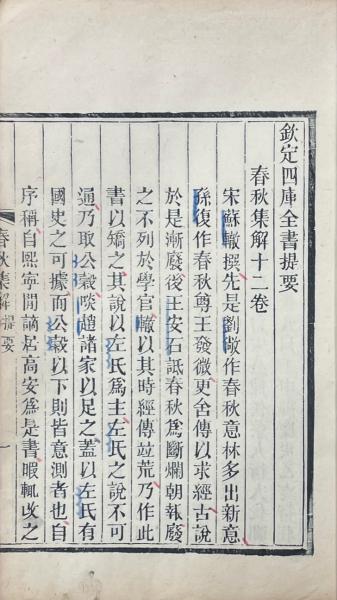 欽定四庫全書提要
春秋集解十二卷
宋蘇轍撰先是劉敞作春秋意林多出新意
孫復作春秋尊王發微更舍傳以求經古說
於是漸廢後王安石詆春秋為斷爛朝報廢
之不列於學官轍以其時經傳竝荒乃作此
書以矯之其說以左氏為主左氏之說不可
通乃取公穀啖趙諸家以足之葢以左氏有
國史之可據而公穀以下則皆意測者也自
序稱自熙寧閒謫居高安為是書暇輒改之
春秋集解 提要 一